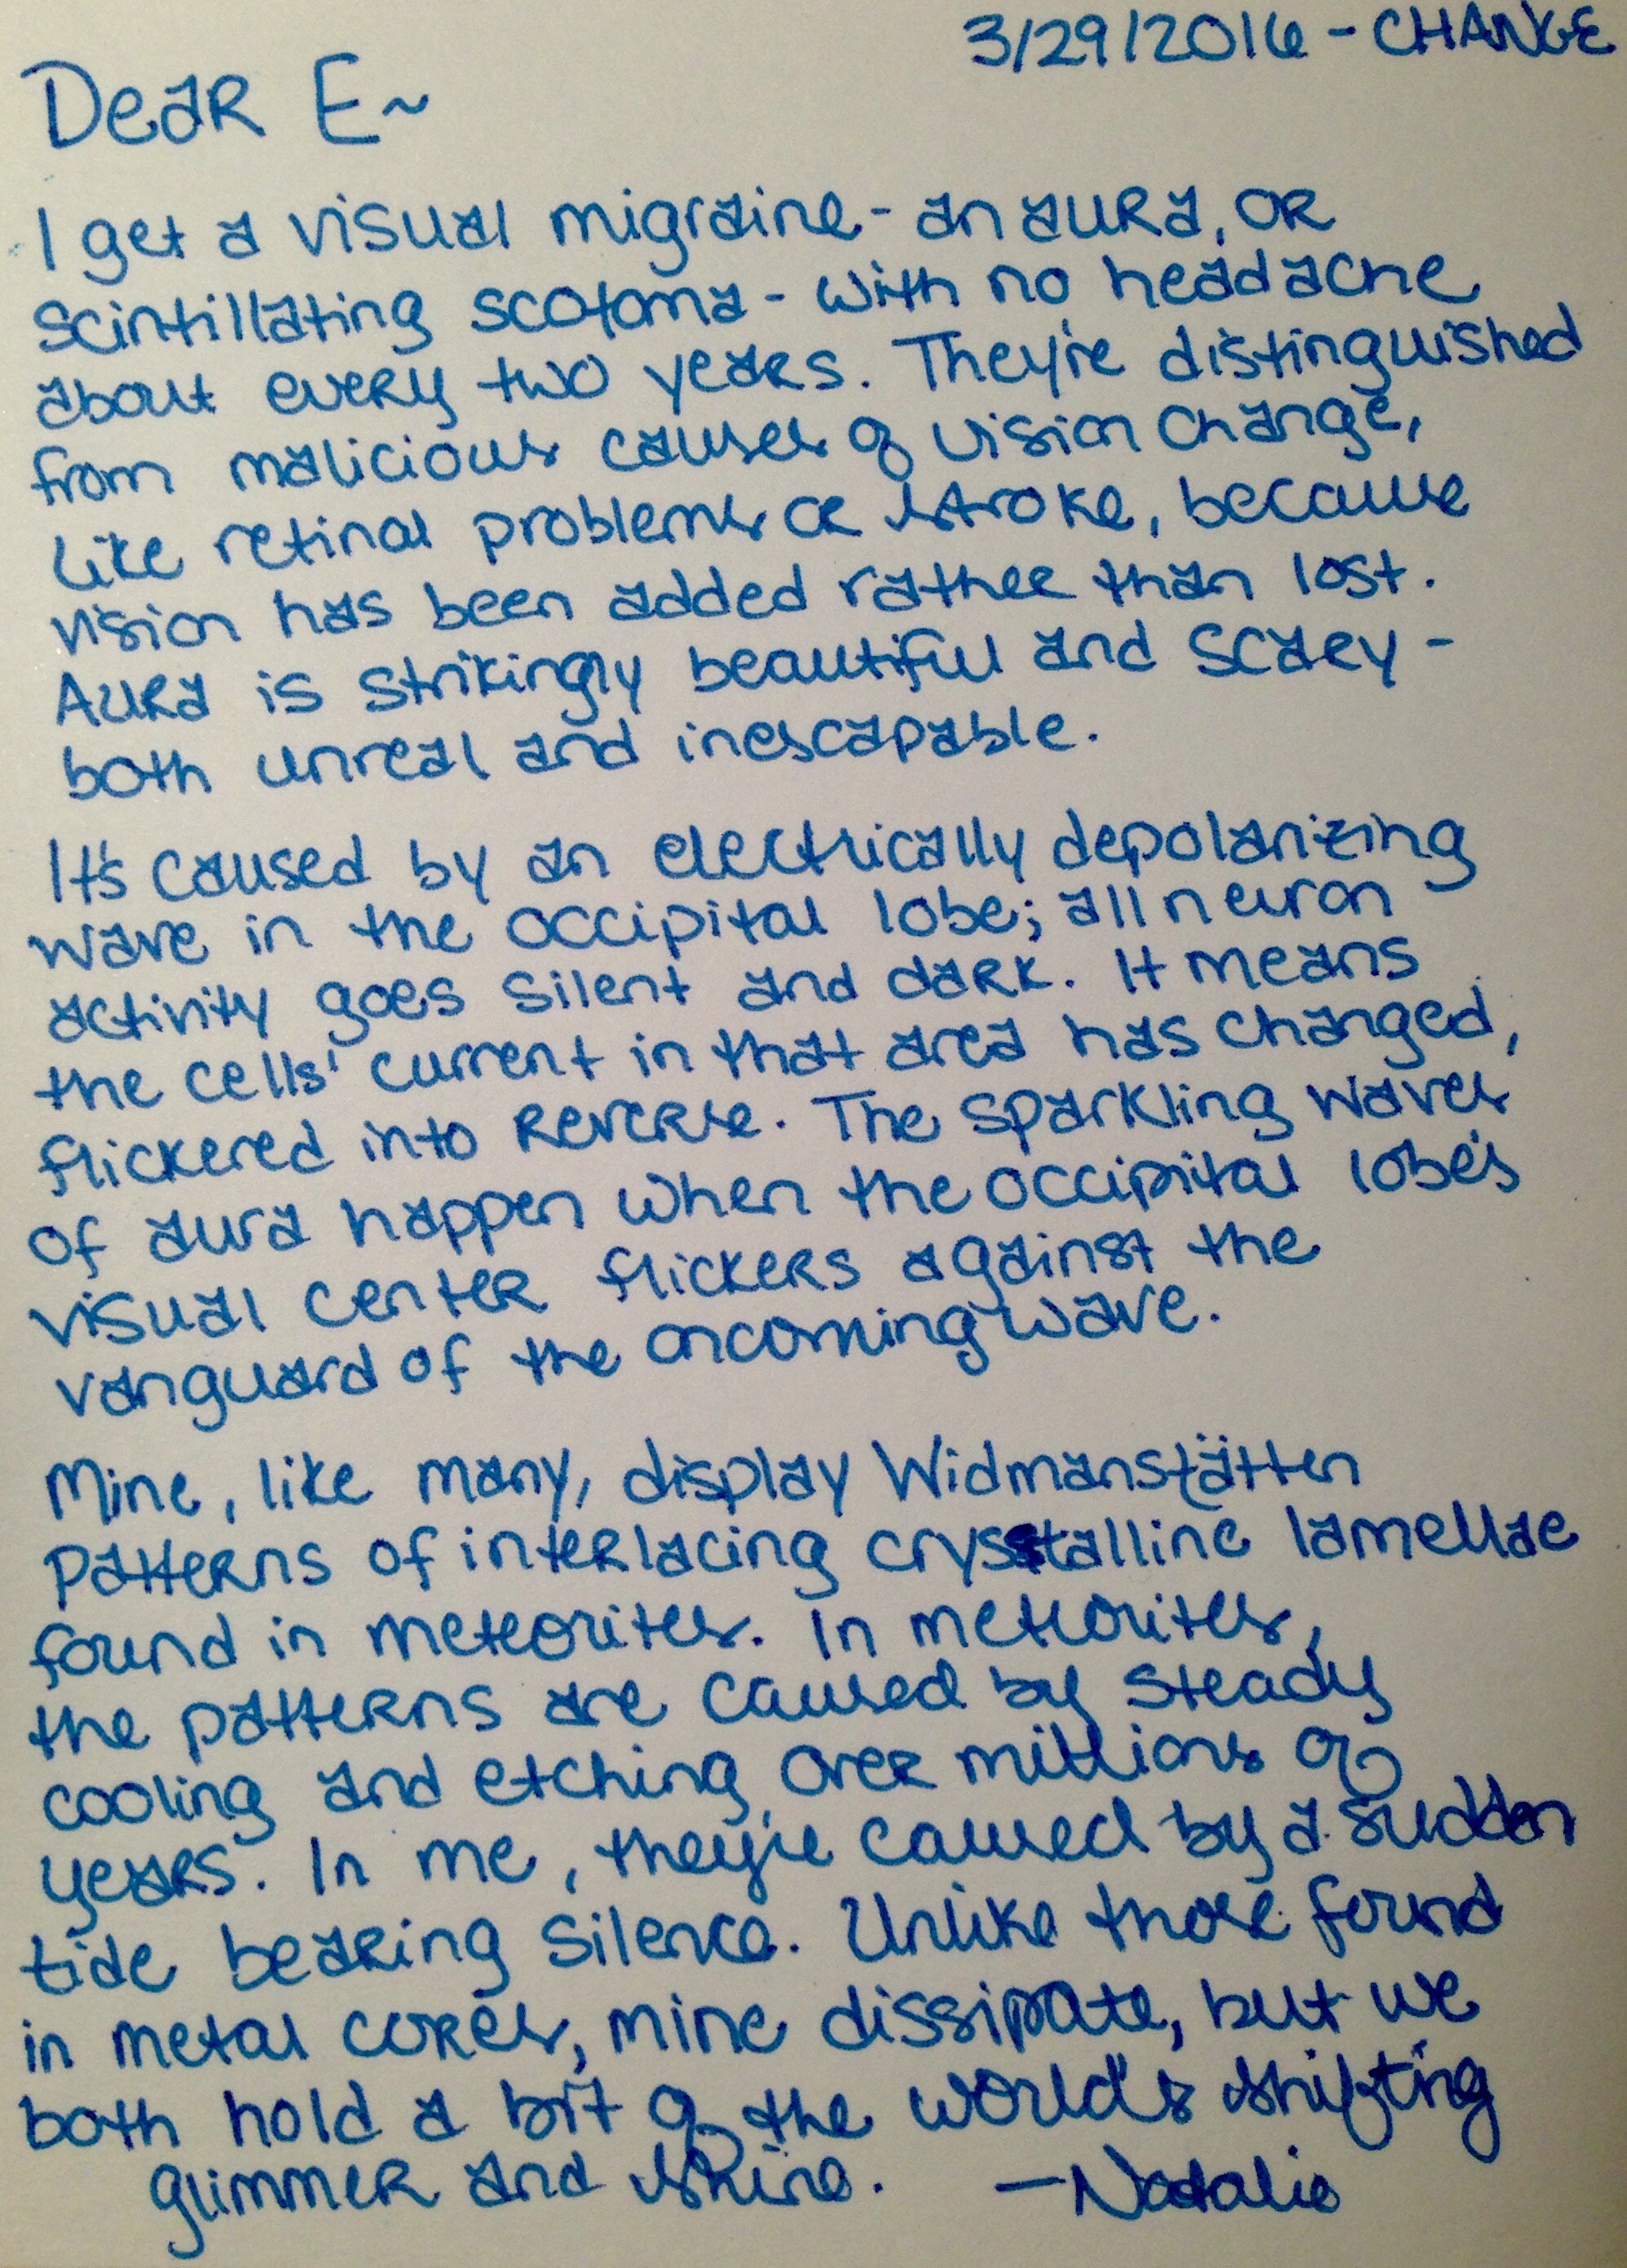 3/29/2016 - CHANGE
Dear E~
I get a visual migraine - an aura, or
scintillating scotoma - with no headache
about every two years. They're distinguished
from malicious causes of vision change,
like retinal problems or stroke, because
vision has been added rather than lost.
Aura is strikingly beautiful and scary -
both unreal and inescapable.
It's caused by an electrically depolarizing
wave in the occipital lobe; all neuron
activity goes silent and dark. It means
the cells' current in that area has changed,
flickered into reverse. The sparkling waves
of aura happen when the occipital lobe's
visual center flickers against the
vanguard of the oncoming wave.
Mine, like many, display Widmanstätten
patterns of interlacing crystalline lamellae
found in meteorites. In meteorites,
the patterns are caused by steady
cooling and etching over millions of
years. In me, they're caused by a sudden
tide bearing silence. Unlike those found
in metal cores, mine dissipate, but we
both hold a bit of the world's shifting
glimmer and shine. - Natalie